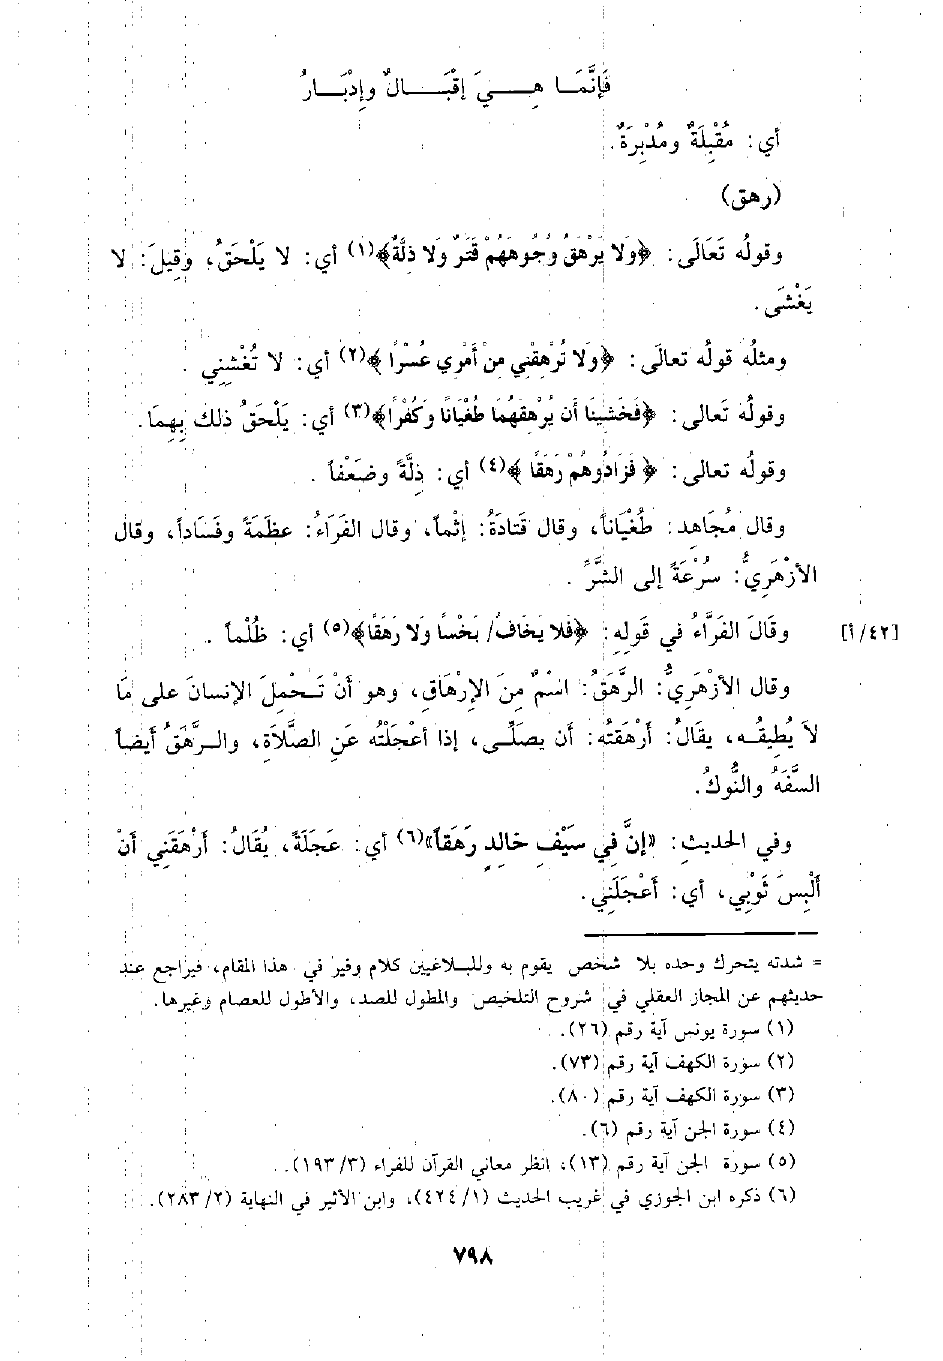 فَإِنَّمَا هِيَ إقْبَالٌ وإدْبَارُ
أي: مُقْبِلَةٌ ومُدْبِرَةٌ.
(رهق)
وقولُه تَعَالَى: ﴿وَلا يَرْهَقُ وُجُوهَهُمْ قَتَرٌ وَلا ذِلَّةٌ﴾(١) أي: لا يَلْحَقُ، وقِيلَ: لا
يَغْشَى.
ومثلُه قولُه تعالَى: ﴿وَلا تُرْهِقْنِي مِنْ أَمْرِي عُسْرًا﴾(٢) أي: لا تُغْشِنِي .
وقولُه تَعالى: ﴿فَخَشِينَا أَن يُرْهِقَهُمَا طُغْيَانًا وَكُفْرًا﴾(٣) أي: يَلْحَقُ ذلك بِهِمَا.
وقولُه تعالى: ﴿فَزَادُوهُمْ رَهَقًا﴾(٤) أي: ذِلَّةً وضَعْفاً .
وقال مُجَاهِد: طُغْيَاناً، وقال قَتادَةُ: إثْماً، وقال الفَرَاءُ: عظَمَةً وفَسَاداً، وقال
الأزْهَرِيُّ: سُرْعَةً إلى الشَّرِّ .
وقَالَ الفَرَّاءُ في قَولِهِ: ﴿فَلا يَخَافُ/ بَخْسًا وَلا رَهَقًا﴾(٥) أي: ظُلْماً . [٤٢/أ]
وقال الأزْهَرِيُّ: الرَّهَقُ: اسْمٌ مِنَ الإرْهَاقِ، وهو أَنْ تَحْمِلَ الإنسانَ على مَا
لاَ يُطِيقُه، يقَالُ: أَرْهَقتُه: أن يصَلِّى، إذا أعْجَلْتُه عَنِ الصَّلاَةِ، والرَّهَقُ أيضاً
السَّفَهُ والنُّوكُ.
وفي الحديثِ: «إنَّ فِي سَيْفِ خالِدٍ رَهَقاً»(٦) أي: عَجَلَةً، يُقَالُ: أَرْهَقَنِي أَنْ
أَلْبِسَ ثَوْبِي، أي: أَعْجَلَنِي.
= شدته يتحرك وحده بلا شخص يقوم به وللبلاغيين كلام وفير في هذا المقام، فيراجع عند
حديثهم عن المجاز العقلي في شروح التلخيص والمطول للصد، والأطول للعصام وغيرها.
(١) سورة يونس آية رقم (٢٦).
(٢) سورة الكهف آية رقم (٧٣).
(٣) سورة الكهف آية رقم (٨٠).
(٤) سورة الجن آية رقم (٦).
(٥) سورة الجن آية رقم (١٣)، انظر معاني القرآن للفراء (٣/ ١٩٣).
(٦) ذكره ابن الجوزي في غريب الحديث (١/ ٤٢٤)، وابن الأثير في النهاية (٢/ ٢٨٣).
٧٩٨